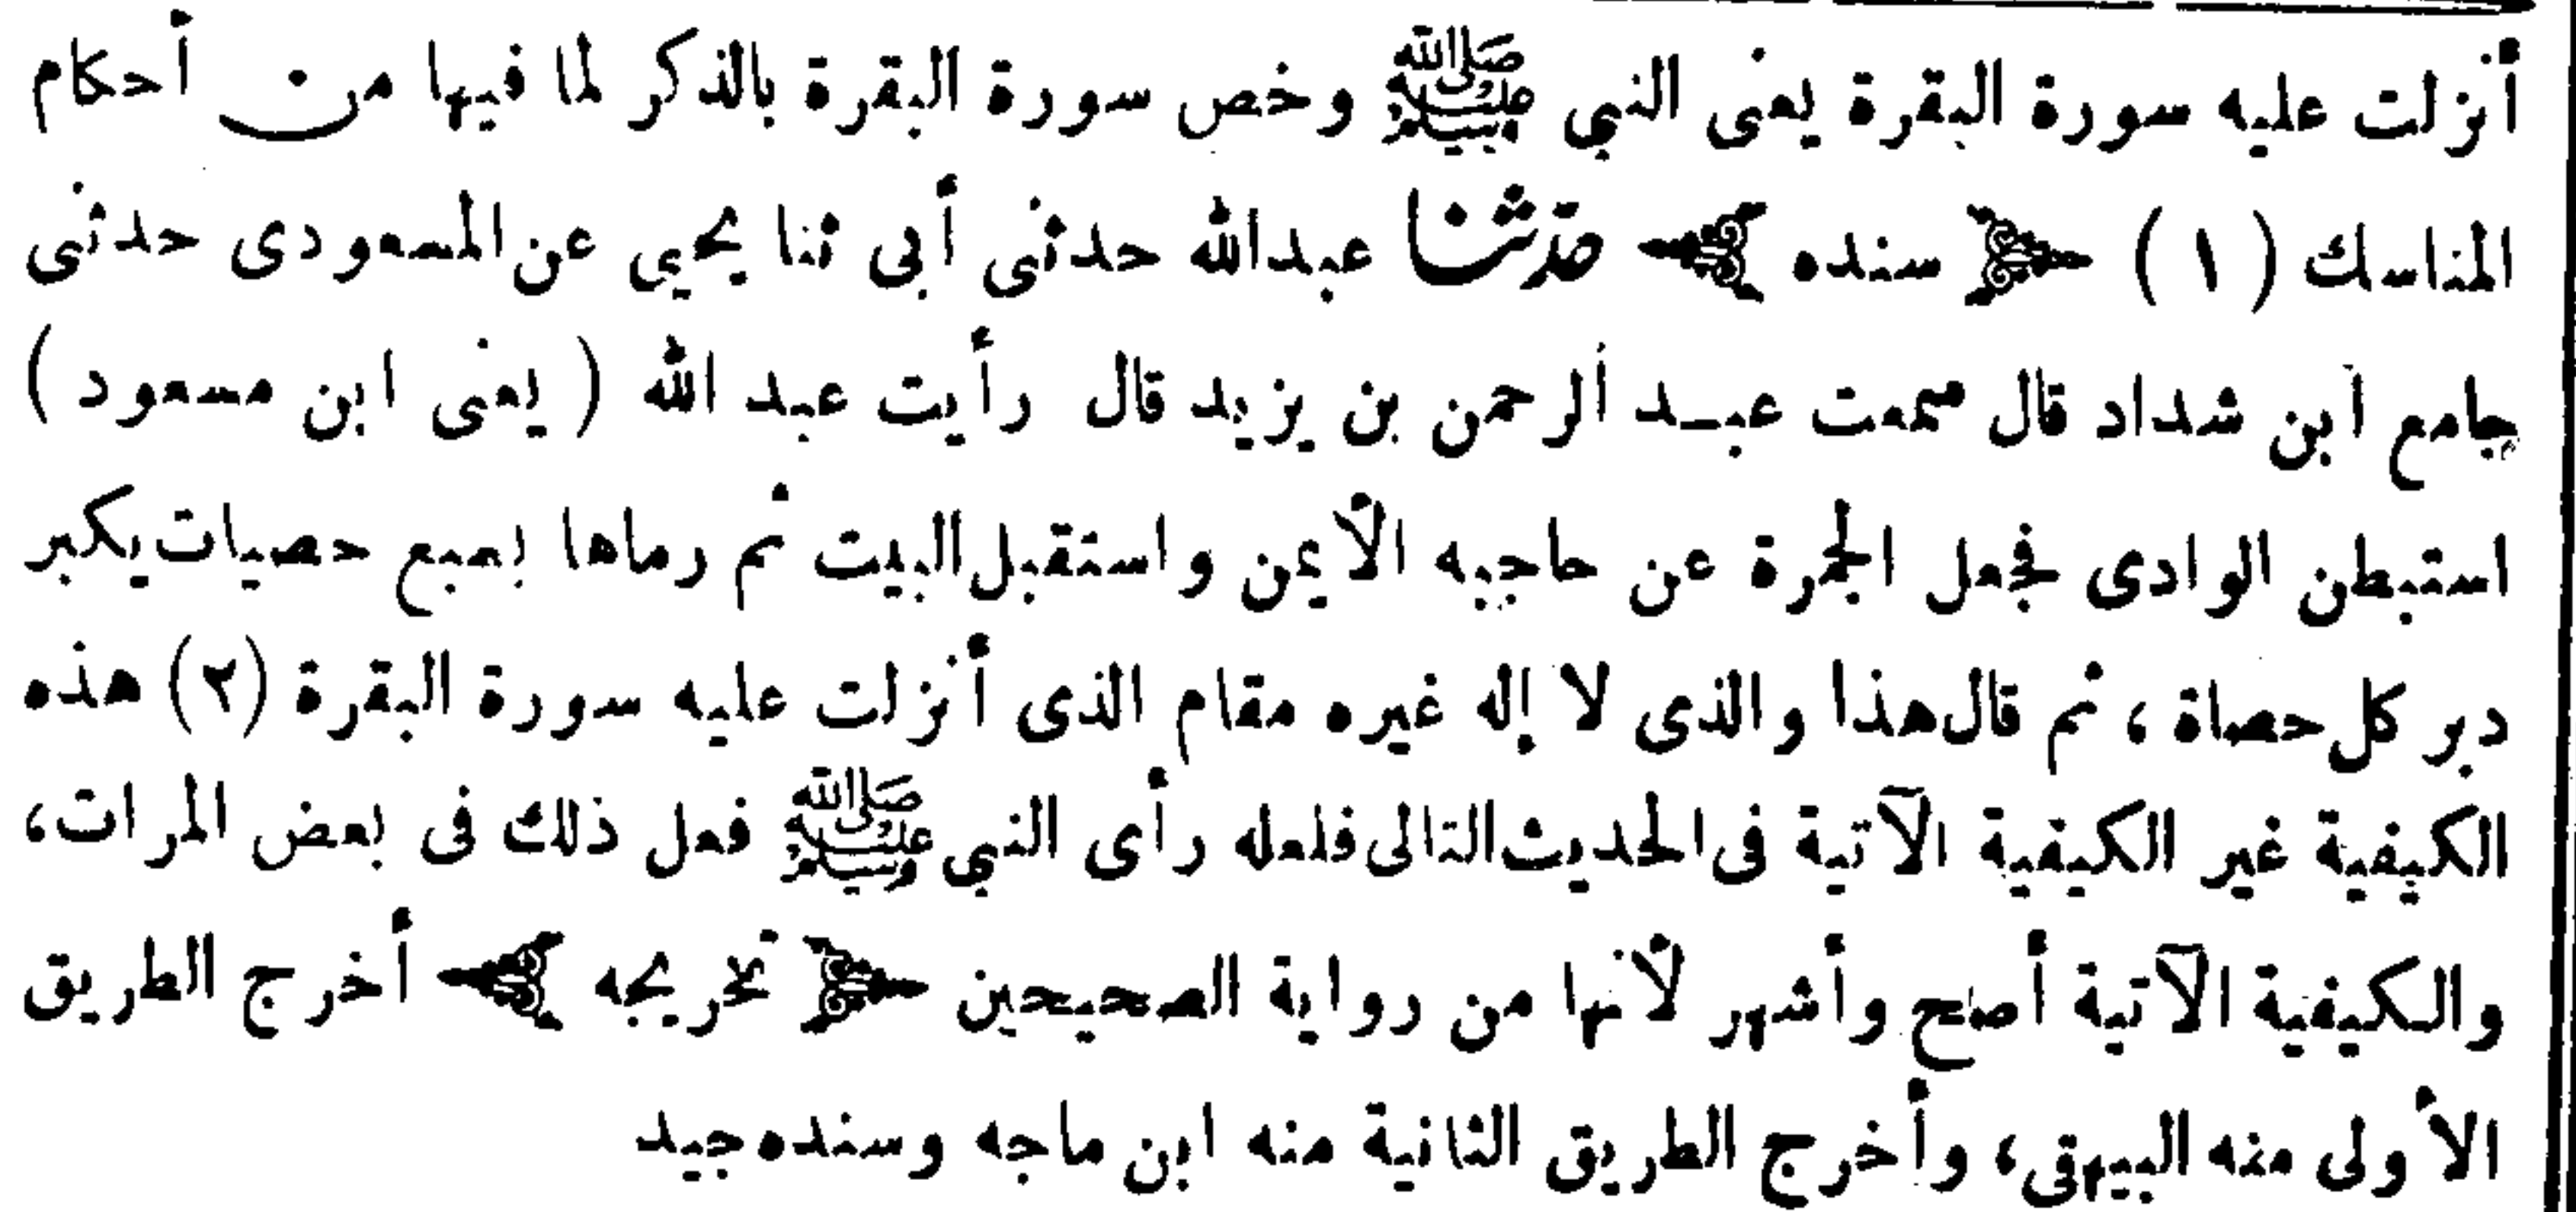 أنزلت عليه سورة البقرة يعنى النبي ﷺ وخص سورة البقرة بالذكر لما فيها من أحكام
المناسك (١) ﴿ سنده ﴾ حدثنا عبدالله حدثنى أبى ثنا يحيي عن المسعودى حدثنى
جامع ابن شداد قال سمعت عبد الرحمن بن يزيد قال رأيت عبد الله ( يعنى ابن مسعود )
استبطن الوادى فجعل الجمرة عن حاجبه الأيمن واستقبل البيت ثم رماها بسبع حصيات يكبر
دبر كل حصاة ، ثم قال هذا والذى لا إله غيره مقام الذى أنزلت عليه سورة البقرة (٢) هذه
الكيفية غير الكيفية الآتية فى الحديث التالى فلعله رأى النبي ﷺ فعل ذلك فى بعض المرات،
والكيفية الآتية أصح وأشهر لأنها من رواية الصحيحين ﴿ تخريجه ﴾ أخرج الطريق
الأولى منه البيهقى، وأخرج الطريق الثانية منه ابن ماجه وسنده جيد